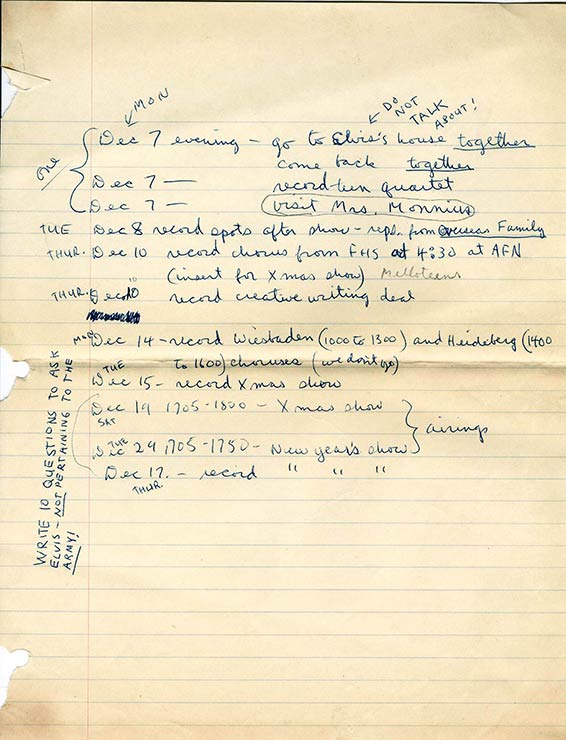 MON
DO NOT TALK ABOUT!
one
Dec 7 evening – go to Elvis's house together
come back together
Dec 7 — record teen quartet
Dec 7 — visit Mrs. Monnius
TUE Dec 8 record spots after show – reps. from Overseas Family
THUR. Dec 10 record chorus from FHS at 4:30 at AFN
(insert for Xmas show) Melloteens
THUR. Dec 10 record creative writing deal
MON Dec 14 – record Wiesbaden (1000 to 1300) and Heidelberg (1400
to 1600) choruses (we don't go)
TUE Dec 15 – record Xmas show
Dec 19 1705-1800 – Xmas show
SAT
airings
TUE Dec 29 1705-1750 – New year's show
Dec 17. – record " " "
THUR.
WRITE 10 QUESTIONS TO ASK
ELVIS – NOT PERTAINING TO THE
ARMY!